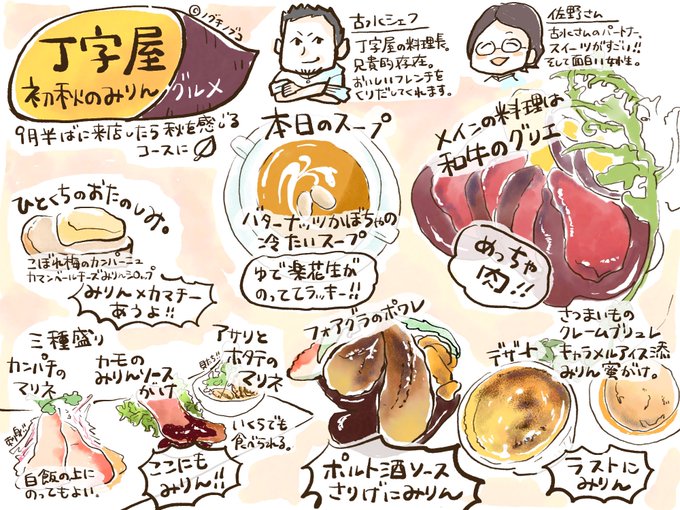 ©ノグチノブコ
丁字屋
初秋のみりんグルメ
9月半ばに来店したら秋を感じる
コースに
古水シェフ
丁字屋の料理長。
兄貴的存在。
おいしいフレンチを
くりだしてくれます。
佐野さん
古水さんのパートナー。
スイーツがすごい!!
そして面白い女性。
ひとくちのおたのしみ。
こぼれ梅のカンパーニュ
カマンベールチーズみりんシロップ
みりん×カマチー
あうよ!!
本日のスープ
バターナッツかぼちゃの
冷たいスープ
ゆで落花生が
のっててラッキー!!
メインの料理は
和牛のグリエ
めっちゃ
肉!!
三種盛り
カンパチの
マリネ
白飯の上に
のってもよい。
カモの
みりんソース
がけ
ここにも
みりん!!
アサリと
ホタテの
マリネ
いくらでも
食べられる。
フォアグラのポワレ
ポルト酒ソース
さりげにみりん
デザート
さつまいもの
クレームブリュレ
キャラメルアイス添
みりん蜜がけ。
ラストに
みりん